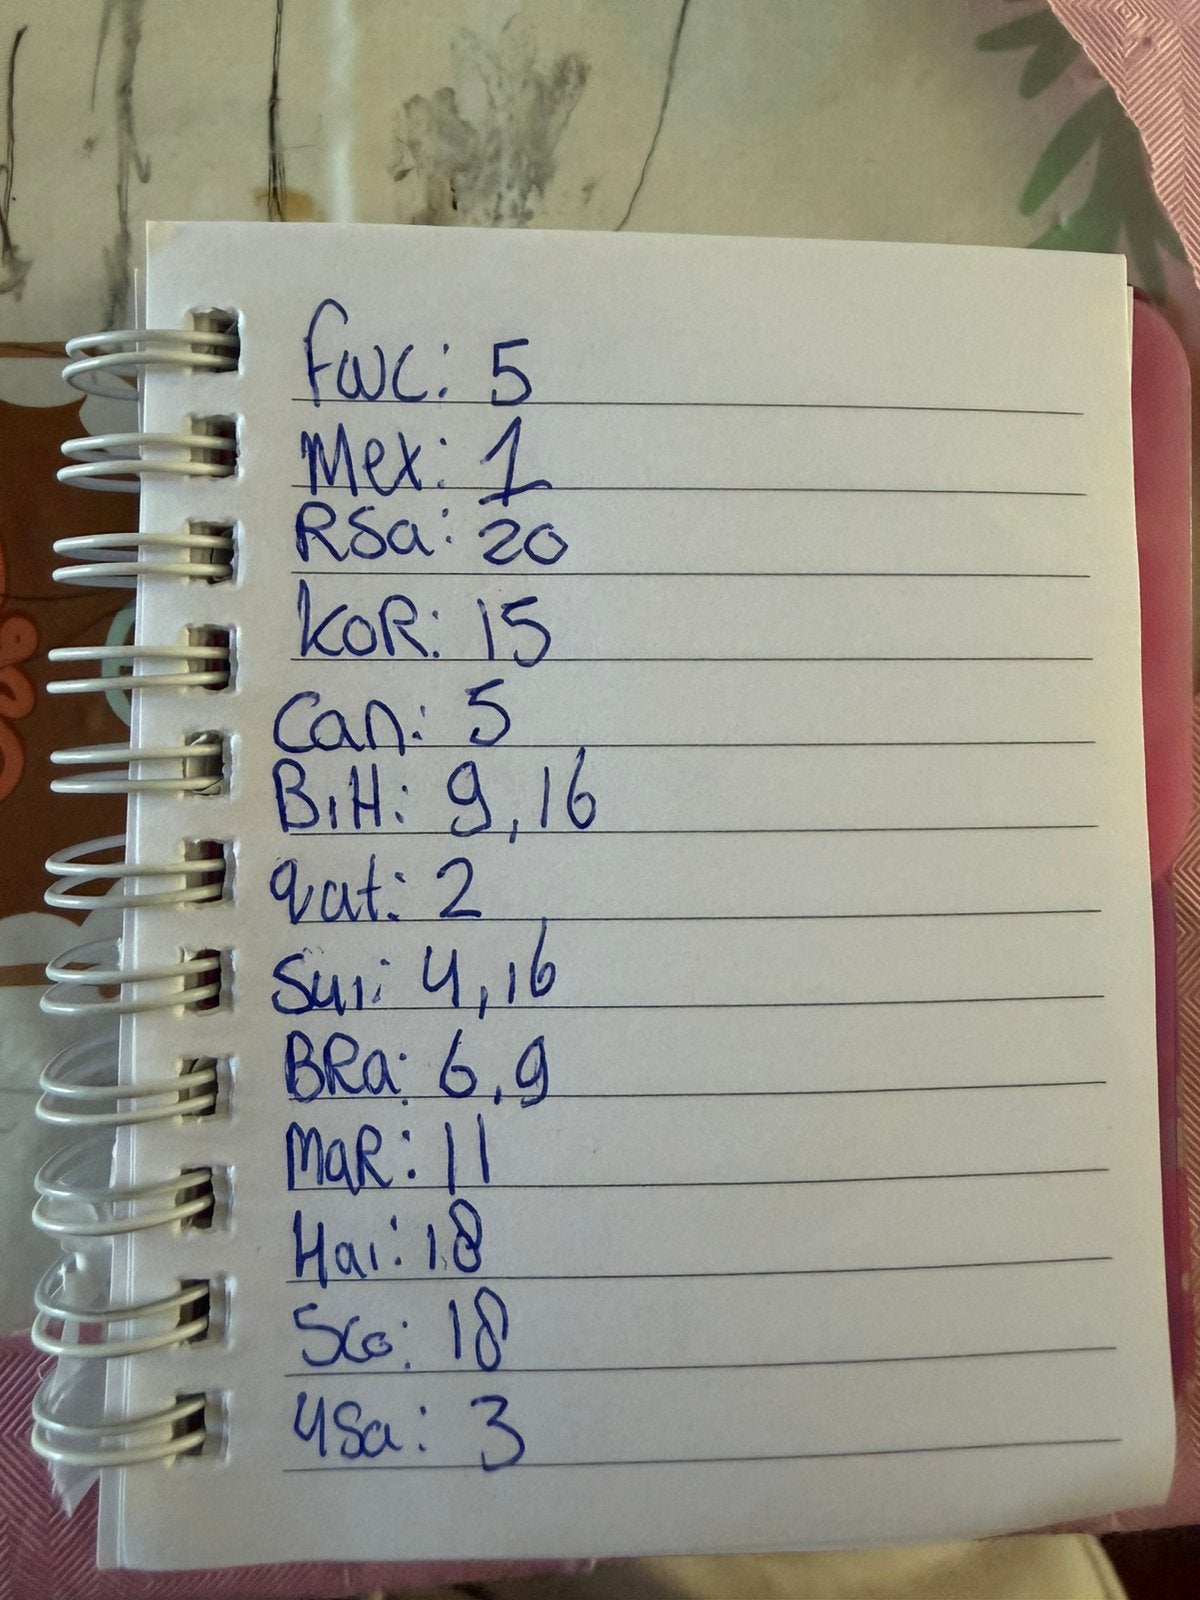 fwc: 5
Mex: 1
RSa: 20
KoR: 15
Can: 5
BiH: 9, 16
qat: 2
Sui: 4, 16
BRa: 6, 9
MaR: 11
Hai: 18
Sco: 18
USa: 3